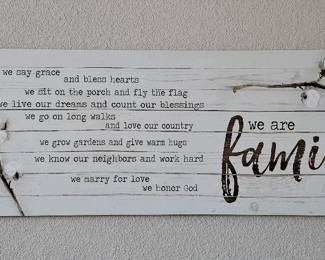 we say grace
and bless hearts
we sit on the porch and fly the flag
we live our dreams and count our blessings
we go on long walks
and love our country
we grow gardens and give warm hugs
we know our neighbors and work hard
we marry for love
we honor God
we are
fami